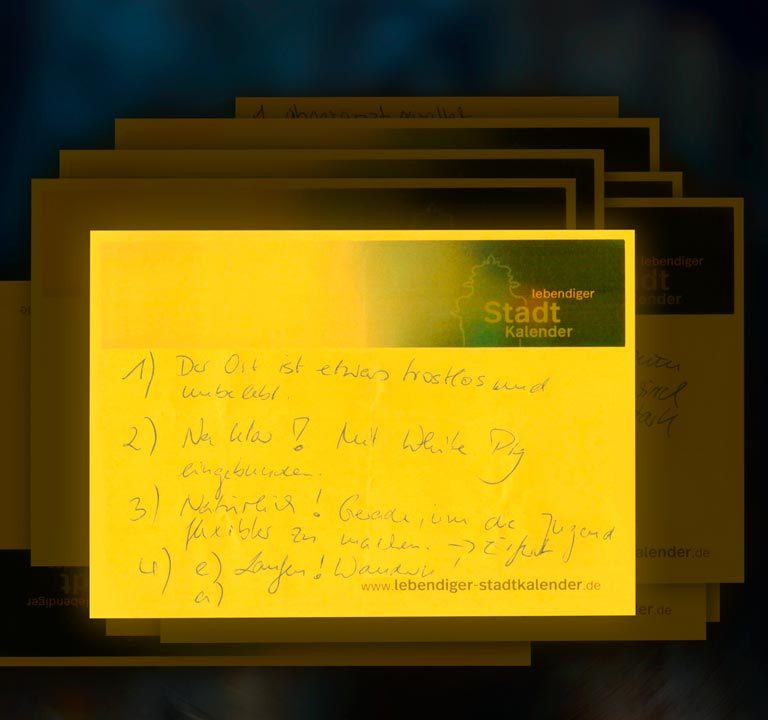 lebendiger
Stadt
Kalender
1) Der Ort ist etwas trostlos und
unbelebt.
2) Na klar! Mit White Pig
eingebunden.
3) Natürlich! Gerade, um die Jugend
flexibler zu machen. →
4) e) Laufen! Wandern!
a)
www.lebendiger-stadtkalender.de
lebendiger
dt
ender
alender.de
er.de